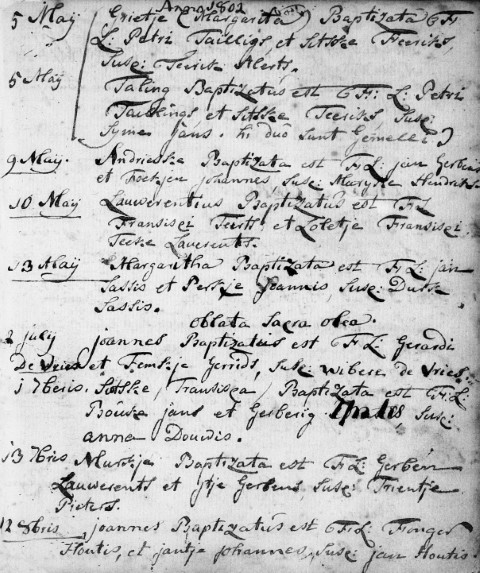 Anno 1802
5 Maij Grietje (Margarita) Baptizata e Fr
L: Petri Tailligs et Sitske Feeriks,
Susc: Teerik Alerts.
5 Maij Taling Baptizatus est e Fr: L: Petri
Taillings et Sitske Teeriks Susc:
Syme Jans. hi duo sunt Gemelli)
9 Maij. Andrieske Baptizata est Fr L: jan Gerbens
et Foekjen johannes, Susc: Maryke Hendriks
10 Maij Lauwerentius Baptizatus est Fr L
Fransisci Teerts et Loletje Fransisci.
Teeske Lauerents.
13 Maij Margaritha Baptizata est Fr L: jan
Sassis et Perkje joannis, Susc: Dutke
Sassis.
oblata sacra olea.
2 july joannes Baptizatus est Fr L: Gerardi
De Vries et Femkje Gerrids, susc: wibere de vries
1 7beris. Sitske, Fransisca, Baptizata est Fr: L:
Bouke jans et Gerberig Susc:
anna Douwis.
13 7bris Murkje Baptizata est Fr L: Gerben
Lauwerents et ytje Gerbens Susc: Trientje
Pieters.
12 8bris joannes Baptizatus est Fr L: Fonger
Houtis, et jantje johannes, susc: jan Houtis.